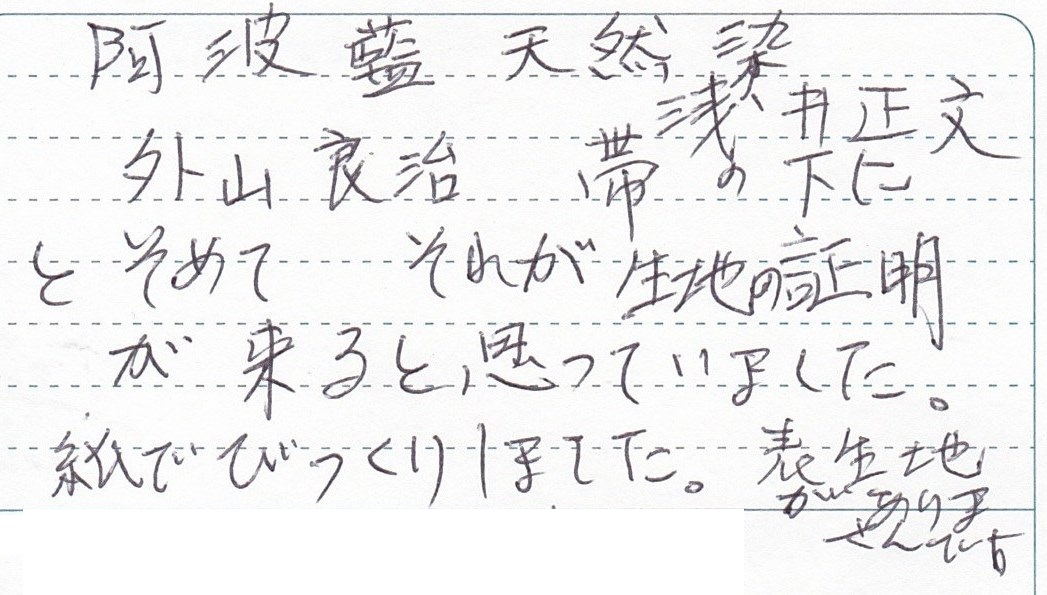 阿波藍 天然染
浅井正文
外山良治 帯の下に
とそめて それが生地の証明
が来ると思っていました。
紙でびっくりしました。表生地
がありま
せん